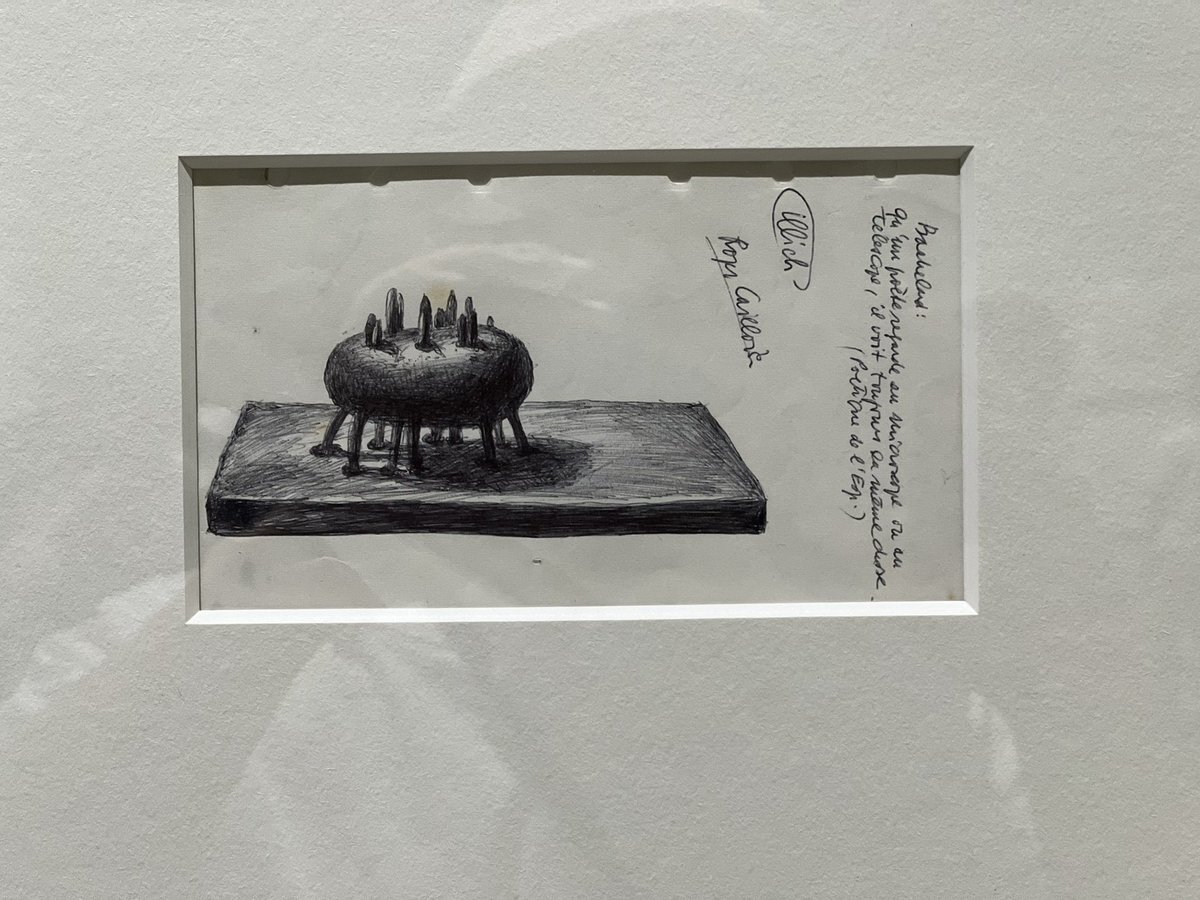 Bachelard:
qu'un poète regarde au microscope ou au
télescope, il voit toujours la même chose.
(Poétique de l'Esp.)
illich
Roger Caillois